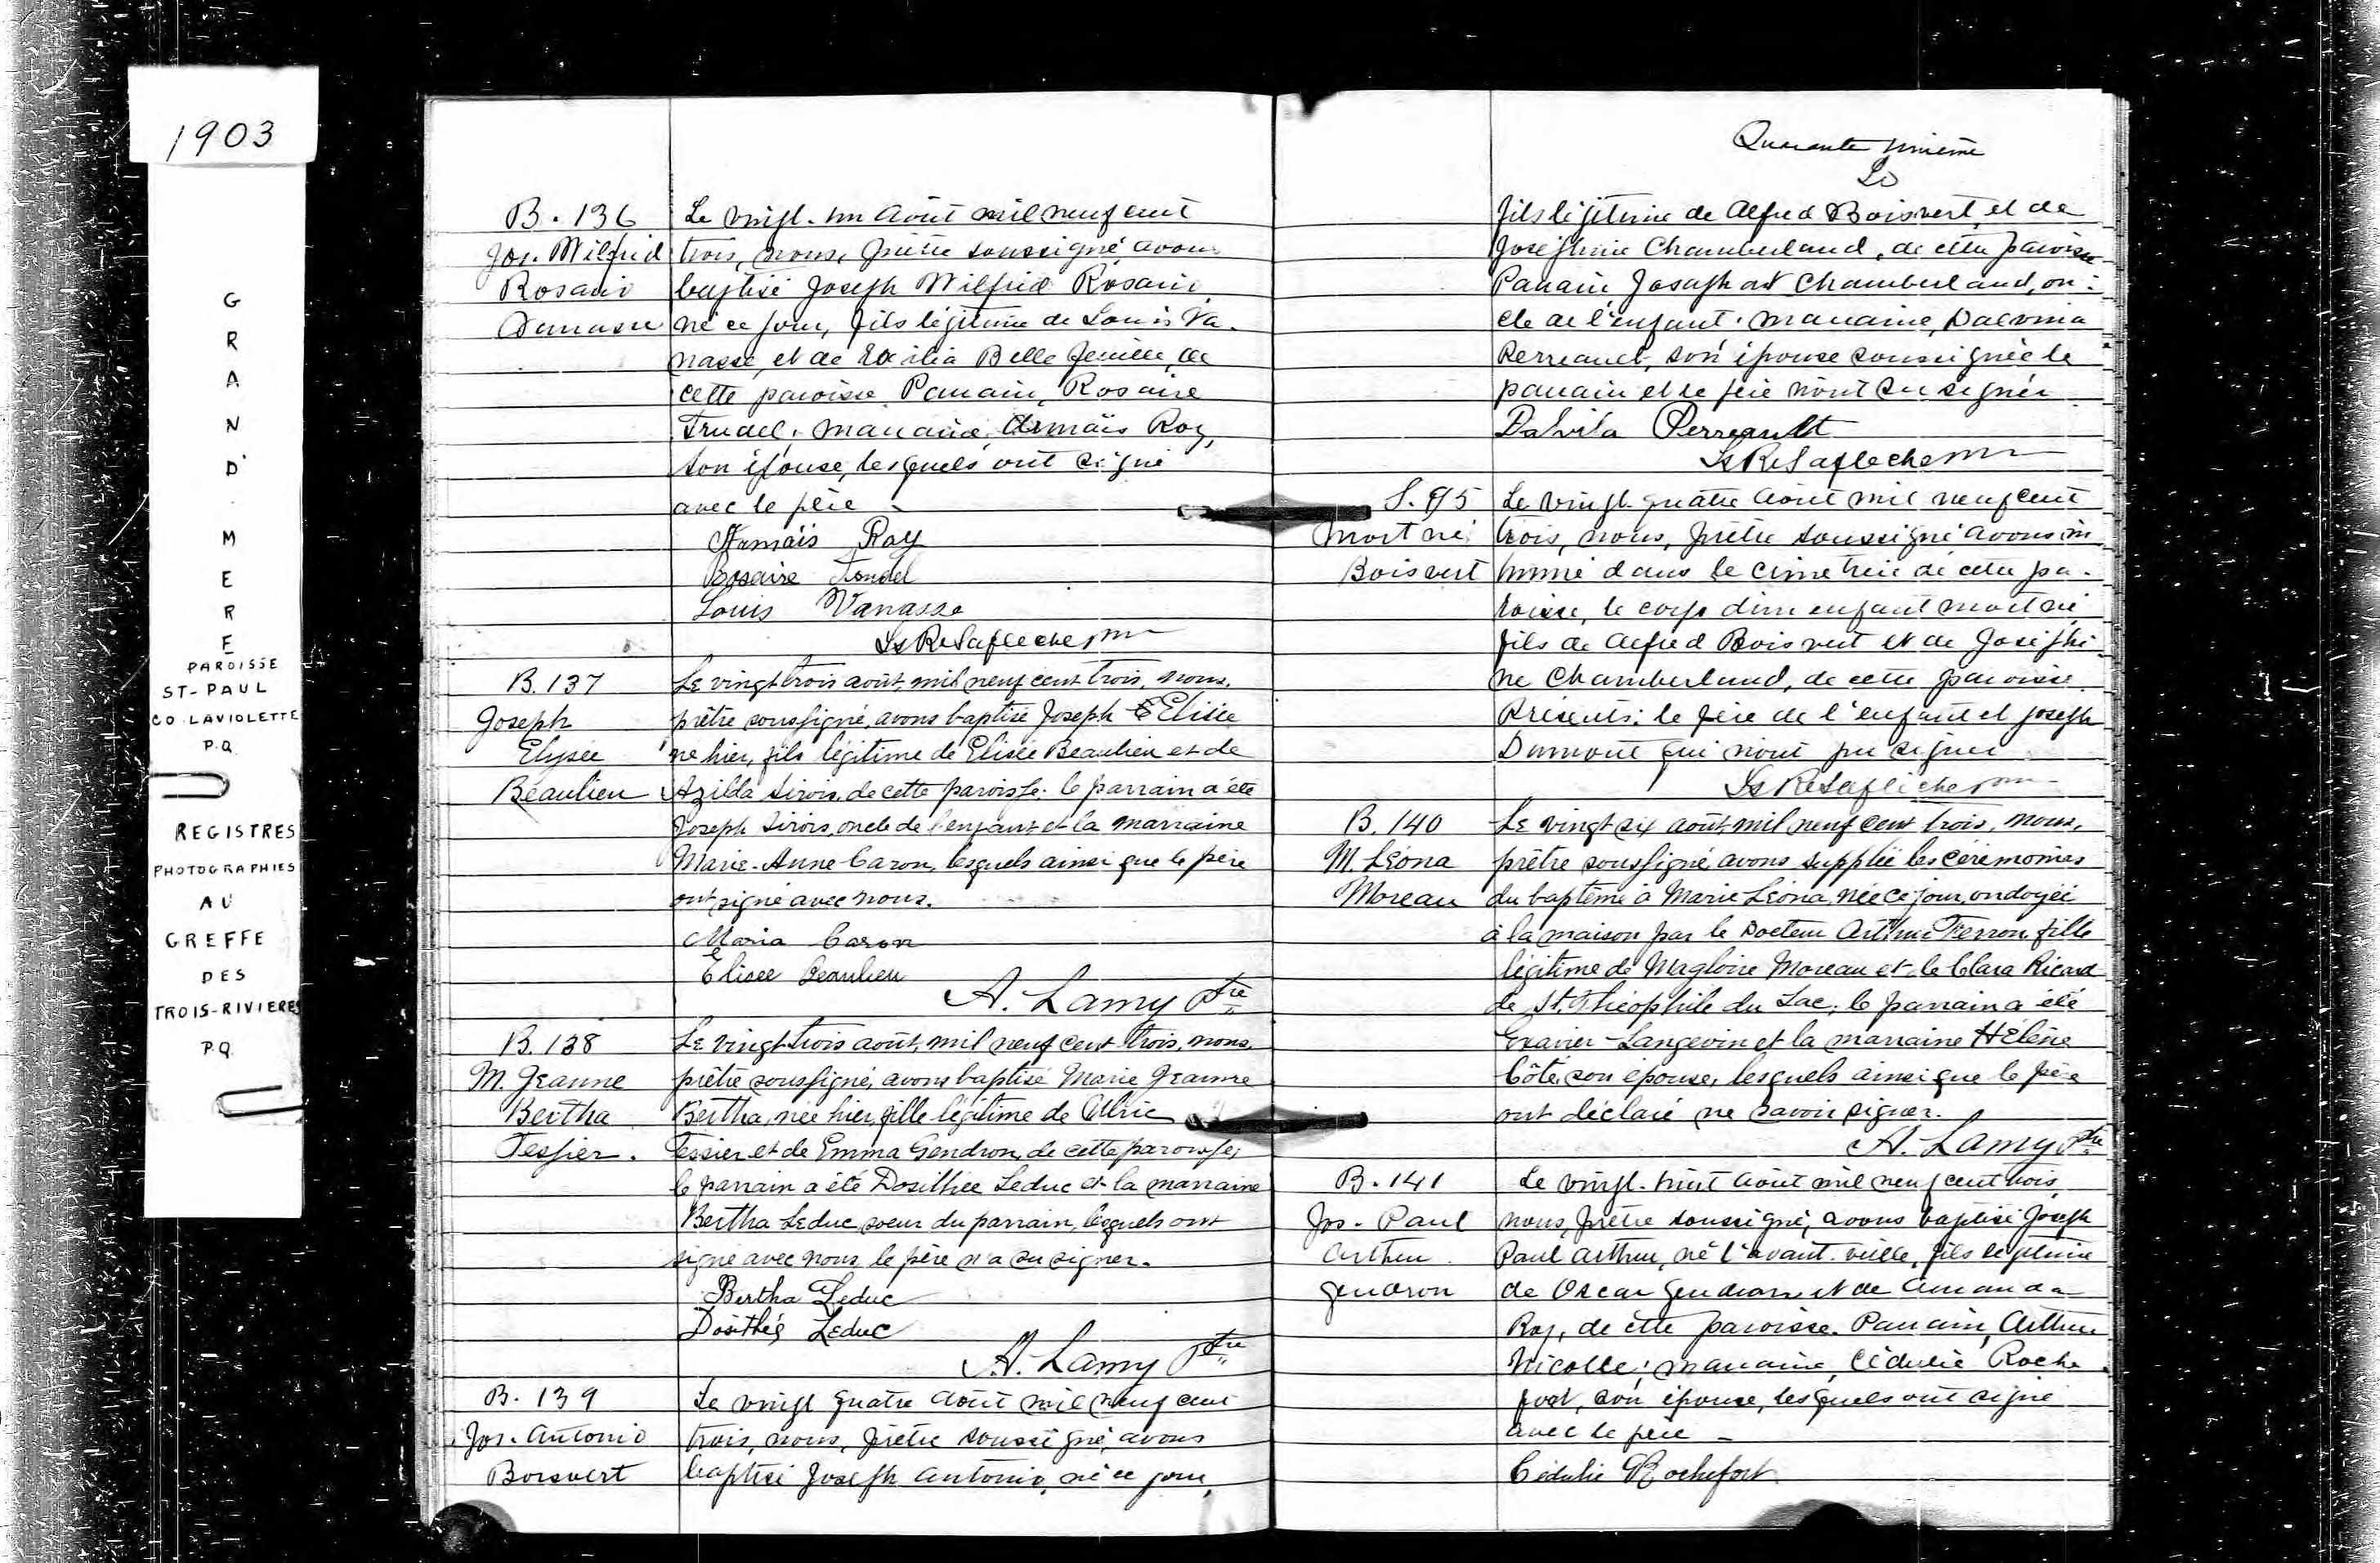 1903
GRAND'MERE
PAROISSE
ST-PAUL
CO LAVIOLETTE
P.Q.
REGISTRES
PHOTOGRAPHIES
AU
GREFFE
DES
TROIS-RIVIERES
P.Q.
B. 136
Jos. Wilfrid
Rosario
Le vingt-un août mil neuf cent
trois, nous, prêtre soussigné, avons
baptisé Joseph Wilfrid Rosario
né ce jour, fils légitime de Louis Va-
nasse, et de Exilia Bellefeuille, de
cette paroisse. Parrain, Rosaire
Trudel, marraine, Armaïs Roy,
son épouse, lesquels ont signé
avec le père
Armaïs Roy
Rosaire Trudel
Louis Vanasse
Ls R Lafleche
B. 137
Joseph
Elysée
Beaulieu
Le vingt trois août, mil neuf cent trois, nous,
prêtre soussigné, avons baptisé Joseph Elisée
né hier, fils légitime de Elisée Beaulieu et de
Azilda Sirois, de cette paroisse; le parrain a été
Joseph Sirois, oncle de l'enfant et la marraine
Marie-Anne Caron, lesquels ainsi que le père
ont signé avec nous.
Maria Caron
Elisee Beaulieu
A. Lamy Ptre
B. 138
M. Jeanne
Bertha
Tessier.
Le vingt trois août, mil neuf cent trois, nous,
prêtre soussigné, avons baptisé Marie Jeanne
Bertha, née hier, fille légitime de Ulric
Tessier et de Emma Gendron, de cette paroisse;
le parrain a été Dosithée Leduc et la marraine
Bertha Leduc, soeur du parrain, lesquels ont
signé avec nous, le père n'a su signer.
Bertha Leduc
Dosithée Leduc
A. Lamy Ptre
B. 139
Jos. Antonio
Boisvert
Le vingt quatre août mil neuf cent
trois, nous, prêtre soussigné, avons
baptisé Joseph Antonio, né ce jour,
Quarante
fils légitime de Alfred Boisvert, et de
Joséphine Chamberland, de cette paroisse
Parrain Josaphat Chamberland, on-
cle de l'enfant. Marraine,
Perreault, son épouse soussignée le
parrain et le père n'ont su signer
Dalvila Perreault
Ls R Lafleche
S. 95
Mort né
Boisvert
Le vingt-quatre août mil neuf cent
trois, nous, prêtre soussigné avons in
humé dans le cimetière de cette pa-
roisse, le corps d'un enfant mort né
fils de Alfred Boisvert et de Joséphi-
ne Chamberland, de cette paroisse
Présents: le père de l'enfant et Joseph
Dumont qui n'ont pu signer
Ls R Lafleche
B. 140
M. Léona
Moreau
Le vingt six août, mil neuf cent trois, nous,
prêtre soussigné, avons supplée les cérémonies
du baptême à Marie Léona, née ce jour, ondoyée
à la maison par le Docteur Arthur Ferron, fille
légitime de Magloire Moreau et de Clara Ricard
de St. Théophile du Lac; le parrain a été
Exavier Langevin et la marraine Hélène
Côté, son épouse, lesquels ainsi que le père
ont déclaré ne savoir signer.
A. Lamy Ptre
B. 141
Jos-Paul
Arthur
Gendron
Le vingt-huit août mil neuf cent trois,
nous, prêtre soussigné, avons baptisé Joseph
Paul Arthur, né l'avant-veille, fils légitime
de Oscar Gendron et de Amanda
Roy, de cette paroisse. Parrain, Arthur
Nicolle; marraine, Cédulie Roche
fort, son épouse, lesquels ont signé
avec le père
Cédulie Rochefort